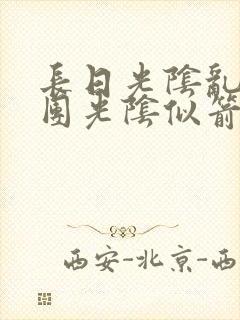 長日光陰亂
團光陰似箭
西安-北京-西